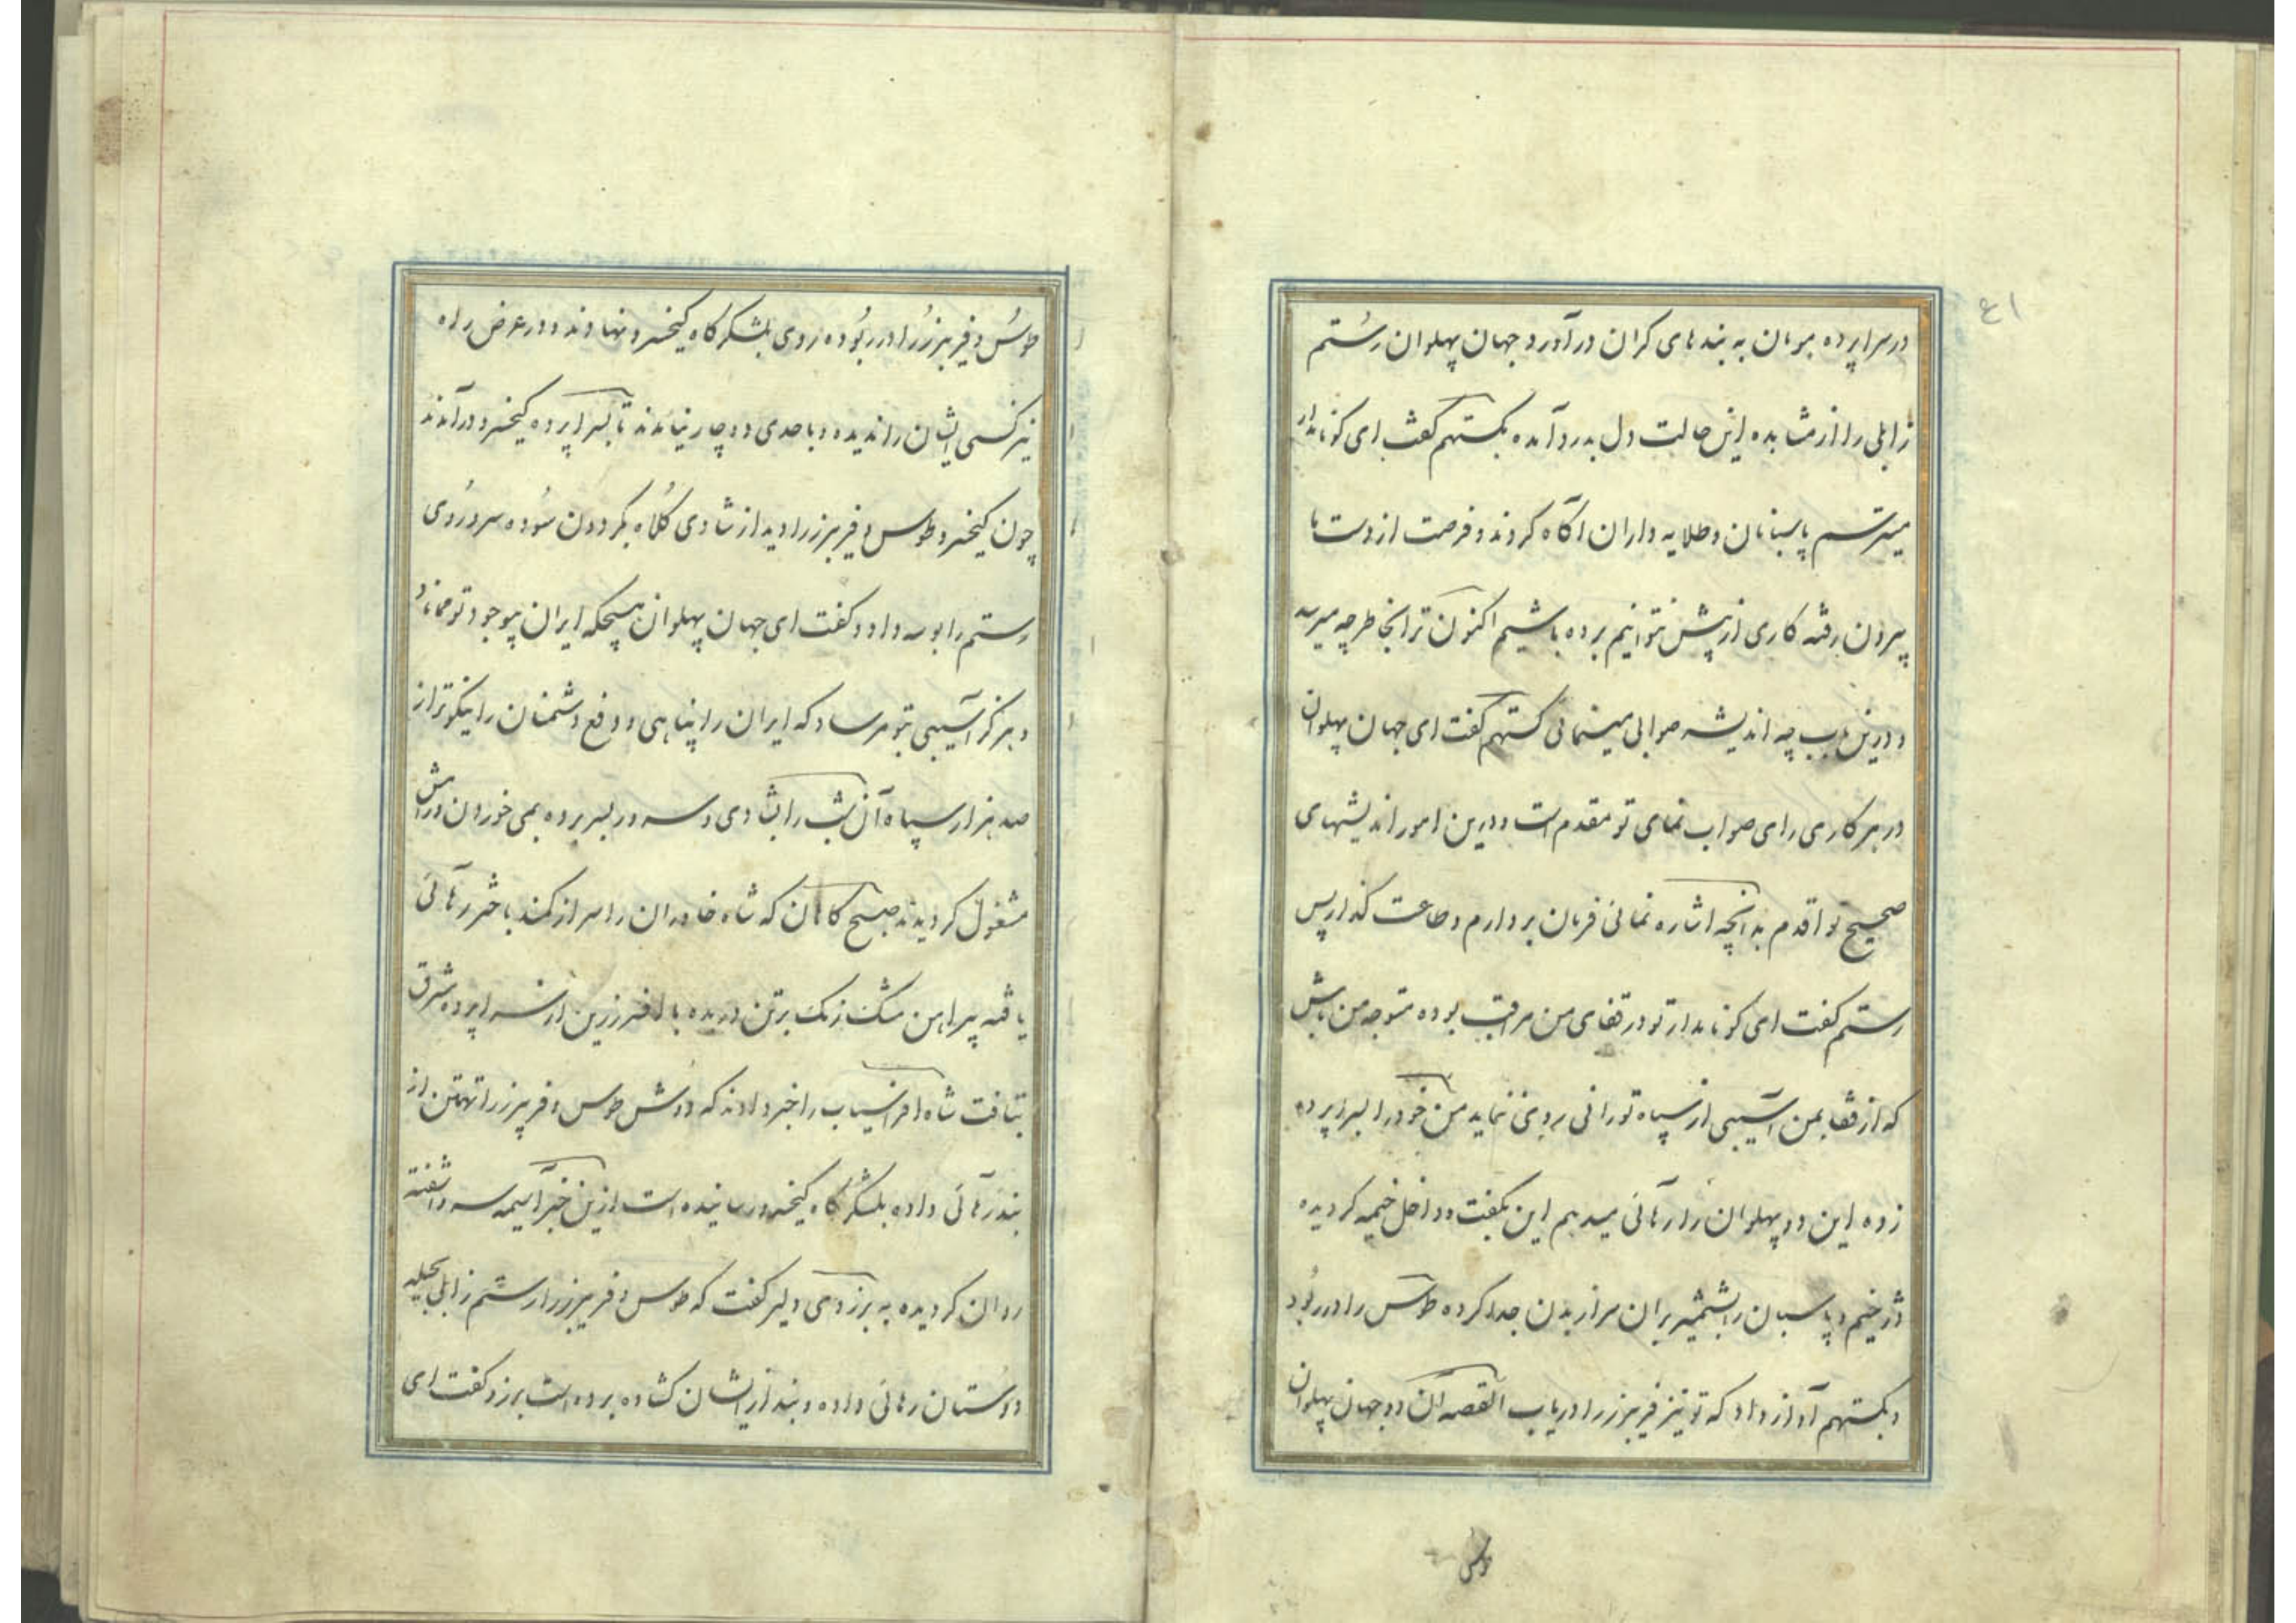 ۴۱
در سراپرده هومان به بندهای کران در آورد و جهان پهلوان رستم
زابلی را از مشاهده این حالت دل بدرد آمده بکستهم کفت ای کونامدار
میترسم پاسبانان و طلایه داران اکاه کردند و فرصت از دست ما
بیرون رفته کاری از پیش نتوانیم برده باشیم اکنون ترا بخاطر چه میرسد
و درین باب چه اندیشه صوابی مینمائی کستهم کفت ای جهان پهلوان
در هر کاری رای صواب نمای تو مقدم است و درین امور اندیشهای
صحیح تو اقدم بدانچه اشاره نمائی فرمان بردارم و طاعت کذار پس
رستم کفت ای کونامدار تو در قفای من مراقب بوده متوجه من باش
که از قفا بمن آسیبی از سپاه تورانی روی ننماید من خود را بسراپرده
زده این دو پهلوان را رهائی میدهم این بکفت و داخل خیمه کردیده
دژخیم و پاسبان را بشمشیر بران سر از بدن جدا کرده طوس را در ربود
و بکستهم آواز داد که تو نیز فریبرز را دریاب القصه آن دو جهان پهلوان
طوس
طوس و فریبرز را در ربوده روی بلشکرکاه کیخسرو نهادند و در عرض راه
نیز کسی ایشان را ندیده و با احدی دوچار نیامدند تا بسراپرده کیخسرو درآمدند
چون کیخسرو طوس و فریبرز را دید از شادی کلاه بکردون سوده سر و روی
رستم را بوسه داد و کفت ای جهان پهلوان هیچکه ایران بیوجود تو مماناد
و هرکز آسیبی بتو مرساد که ایران را پناهی و دفع دشمنان را نیکوتر از
صد هزار سپاه آن شب را بشادی و سرور بسر برده بمی خوردن و رامش
مشغول کردیدند صبح کاهان که شاه خاوران را سر از کمند باختر رهائی
یافته پیراهن مشک رنک بر تن دریده با افسر زرین از سراپرده شرق
بتافت شاه افراسیاب را خبر دادند که دوش طوس و فریبرز را تهمتن از
بند رهائی داده بلشکرکاه کیخسرو رسانیده است ازین خبر آسیمه سر و آشفته
روان کردیده به برزوی دلیر کفت که طوس و فریبرز را رستم زابلی بحیله
و دستان رهائی داده و بند از ایشان کشاده برده است برزو کفت ای